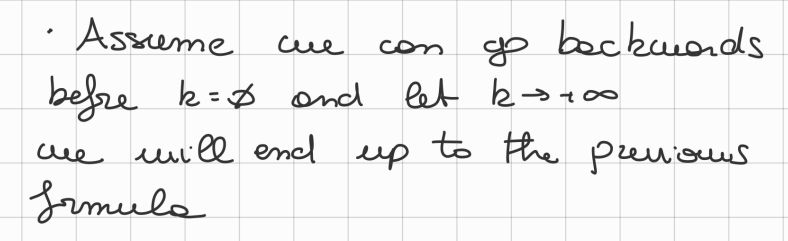 · Assume we can go backwards
before k=ø and let k→+∞
we will end up to the previous
formula